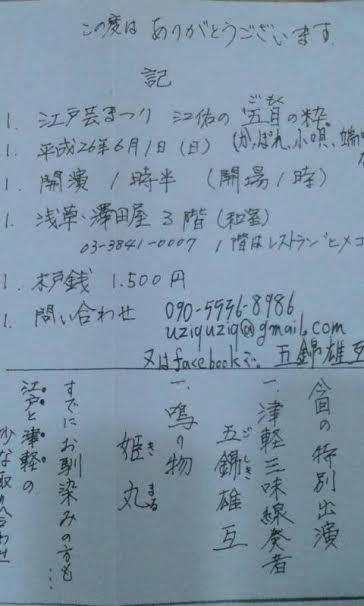 この度は ありがとうございます
記
1. 江戸芸まつり 江佑の五目の粋
ごもく
1. 平成26年6月1日(日) (かっぽれ、小唄、端
1. 開演 1時半 (開場1時)
1. 浅草・澤田屋 3階(和室)
03-3841-0007 1階はレストランヒメコ
1. 木戸銭 1.500円
1. 問い合わせ 090-5556-8986
uziquziq@gmail.com
又はfacebookで 五錦雄互
今回の特別出演
一、津軽三味線奏者
五錦雄互
ごしき
一、鳴り物
姫丸
きまる
すでにお馴染みの方も…
江戸と津軽の
少な取り合わせ